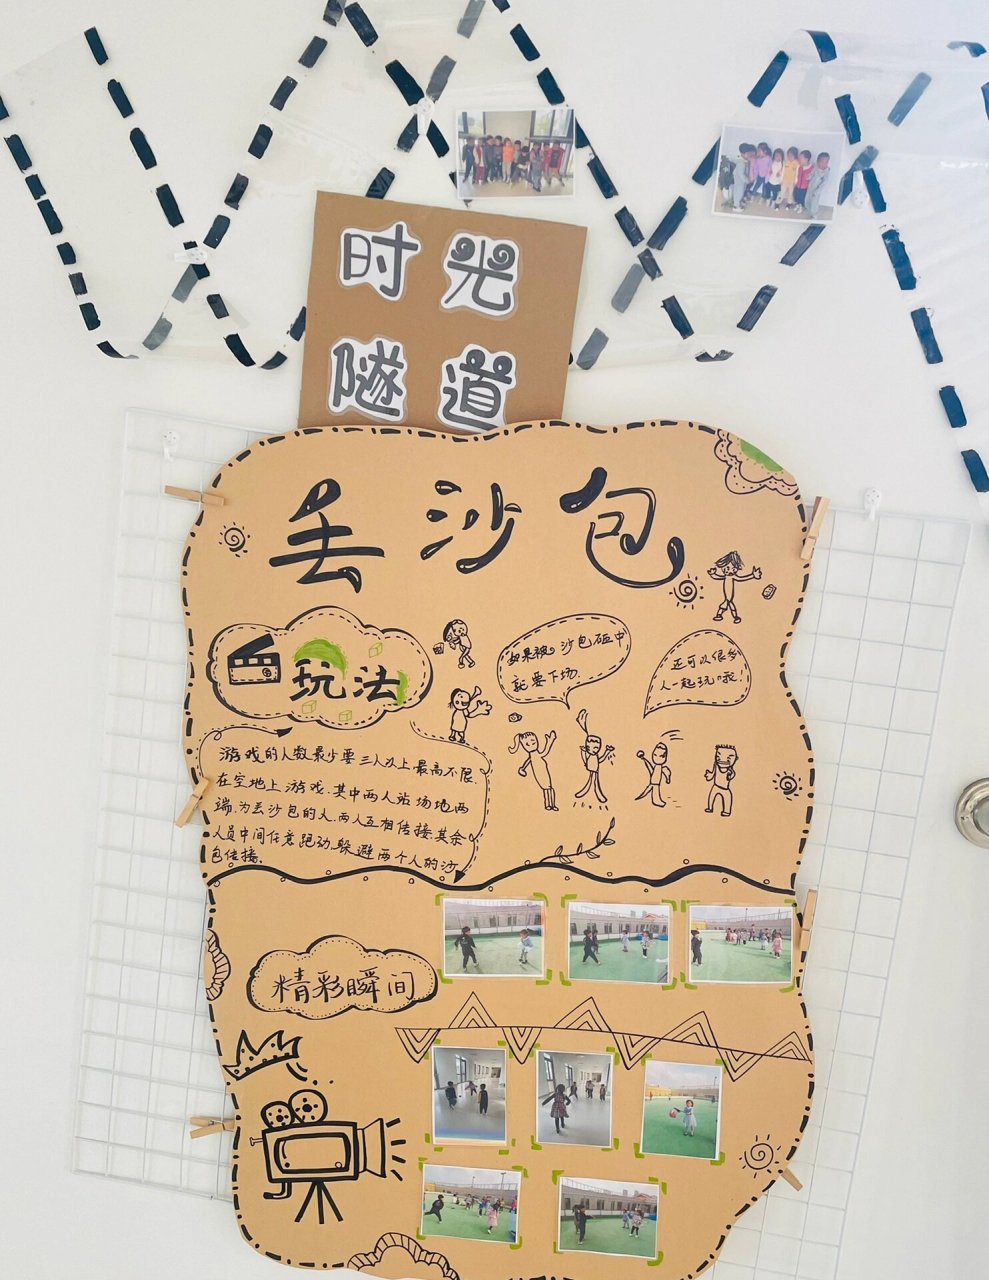 时光
隧道
丢沙包
玩法
如果被沙包砸中
就要下场.
还可以很多
人一起玩哦!
游戏的人数最少要三人以上.最高不限.
在空地上游戏.其中两人站场地两
端.为丢沙包的人.两人互相传接.其余
人员中间任意跑动.躲避两个人的沙
包传接.
精彩瞬间